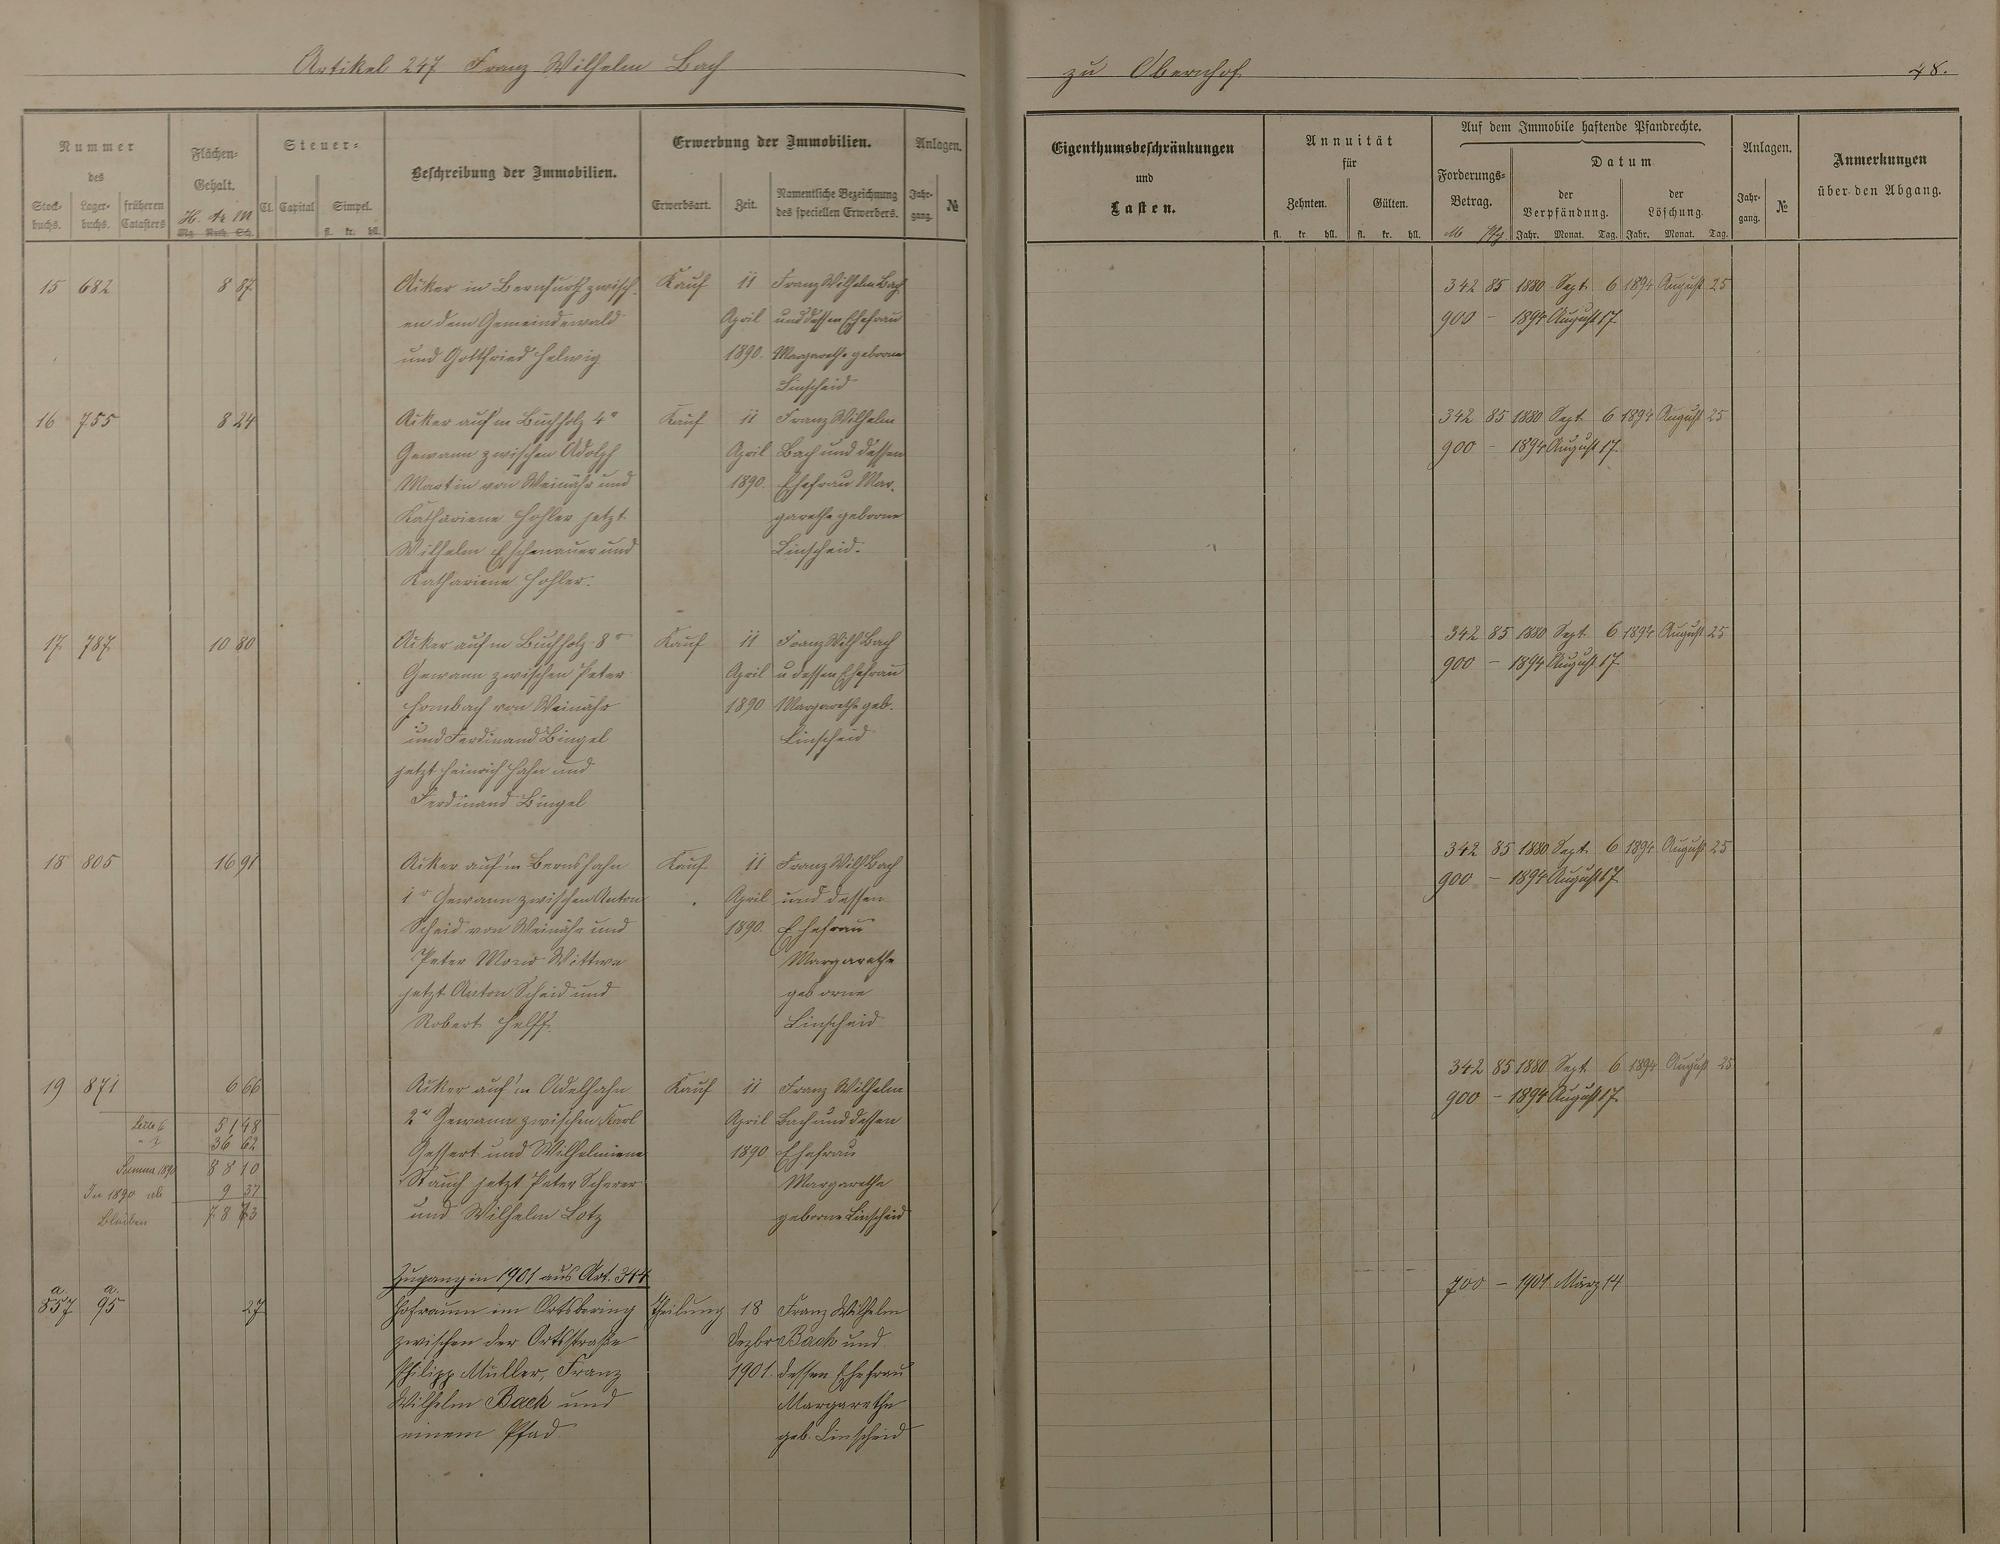 Artikel 247 Franz Wilhelm Bach
zu Obernhof
48.
Nummer
des
Stock-
buchs.
Lager-
buchs.
früheren
Catasters
Flächen-
Gehalt.
H. Ar M
Mg. Rth. Sch.
Steuer-
Cl. Capital Simpel.
fl. kr. hll.
Beschreibung der Immobilien.
Erwerbung der Immobilien.
Erwerbsart. Zeit.
Namentliche Bezeichnung
des speciellen Erwerbers.
Anlagen.
Jahr-
gang.
№
Eigenthumsbeschränkungen
und
Lasten.
Annuität
für
Zehnten. Gülten.
fl. kr. hll. fl. kr. hll.
Auf dem Immobile haftende Pfandrechte.
Forderungs-
Betrag.
M Pfg
Datum
der
Verpfändung.
der
Löschung.
Jahr. Monat. Tag. Jahr. Monat. Tag.
Anlagen.
Jahr-
gang.
№
Anmerkungen
über den Abgang.
15 682 8 87 Acker in zwisch- Kauf 11 Franz Wilhelm Bach 342 85 1880 Sept. 6 1894 August 25
en dem Gemeindewald April und dessen Ehefrau 900 – 1894 August 17.
und Gottfried Helwig 1890. Margarethe geborne
Linscheid
16 755 8 24 Acker auf'm Buchholz 4r Kauf 11 Franz Wilhelm 342 85 1880 Sept. 6 1894 August 25
Gewann zwischen Adolph April Bach und dessen 900 – 1894 August 17.
Martin von Weinähr und 1890. Ehefrau Mar-
Kathariene Hohler jetzt garethe geborne
Wilhelm Eschenauer und Linscheid.
Kathariene Hohler.
17. 787. 10 80 Acker auf'm Buchholz 8r Kauf 11 Franz Wilh Bach 342 85 1880 Sept. 6 1894 August 25
Gewann zwischen Peter April u dessen Ehefrau 900 – 1894 August 17.
Hombach von Weinähr 1890 Margarethe geb.
und Ferdinand Bingel Linscheid
jetzt Heinrich Hahn und
Ferdinand Bingel
18 805 16 91 Acker auf'm Bernshahn Kauf 11 Franz Wilh Bach 342 85 1880 Sept. 6 1894 August 25
1r Gewann zwischen Anton April und dessen 900 – 1894 August 17.
Scheid von Weinähr und 1890. Ehefrau
Peter Wittwe Margarethe
jetzt Anton Scheid und geborne
Robert Helff. Linscheid
19 871 6 66 Acker auf'm Adelhahn Kauf 11 Franz Wilhelm 342 85 1880 Sept. 6 1894 August 25
2r Gewann zwischen Karl April Bach und dessen 900 – 1894 August 17.
Gessert und Wilhelmiene 1890 Ehefrau
Stauch jetzt Peter Scherer Margarethe
und Wilhelm Lotz geborne Linscheid
Seite 6 51 48
" 7 36 62
Summa 1890 88 10
In 1890 ab 9 37
Bleiben 78 73
Zugang in 1901 aus Art. 344
a. a.
857 95 27 Hofraum im Ortsbering Theilung 18 Franz Wilhelm 700 – 1901 März 14
zwischen der Ortsstraße Dezbr Bach und
Philipp Müller, Franz 1901. dessen Ehefrau
Wilhelm Bach und Margarethe
einem Pfad geb. Linscheid